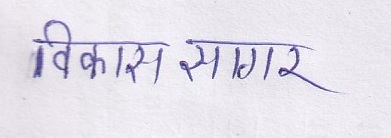 विकास सागर